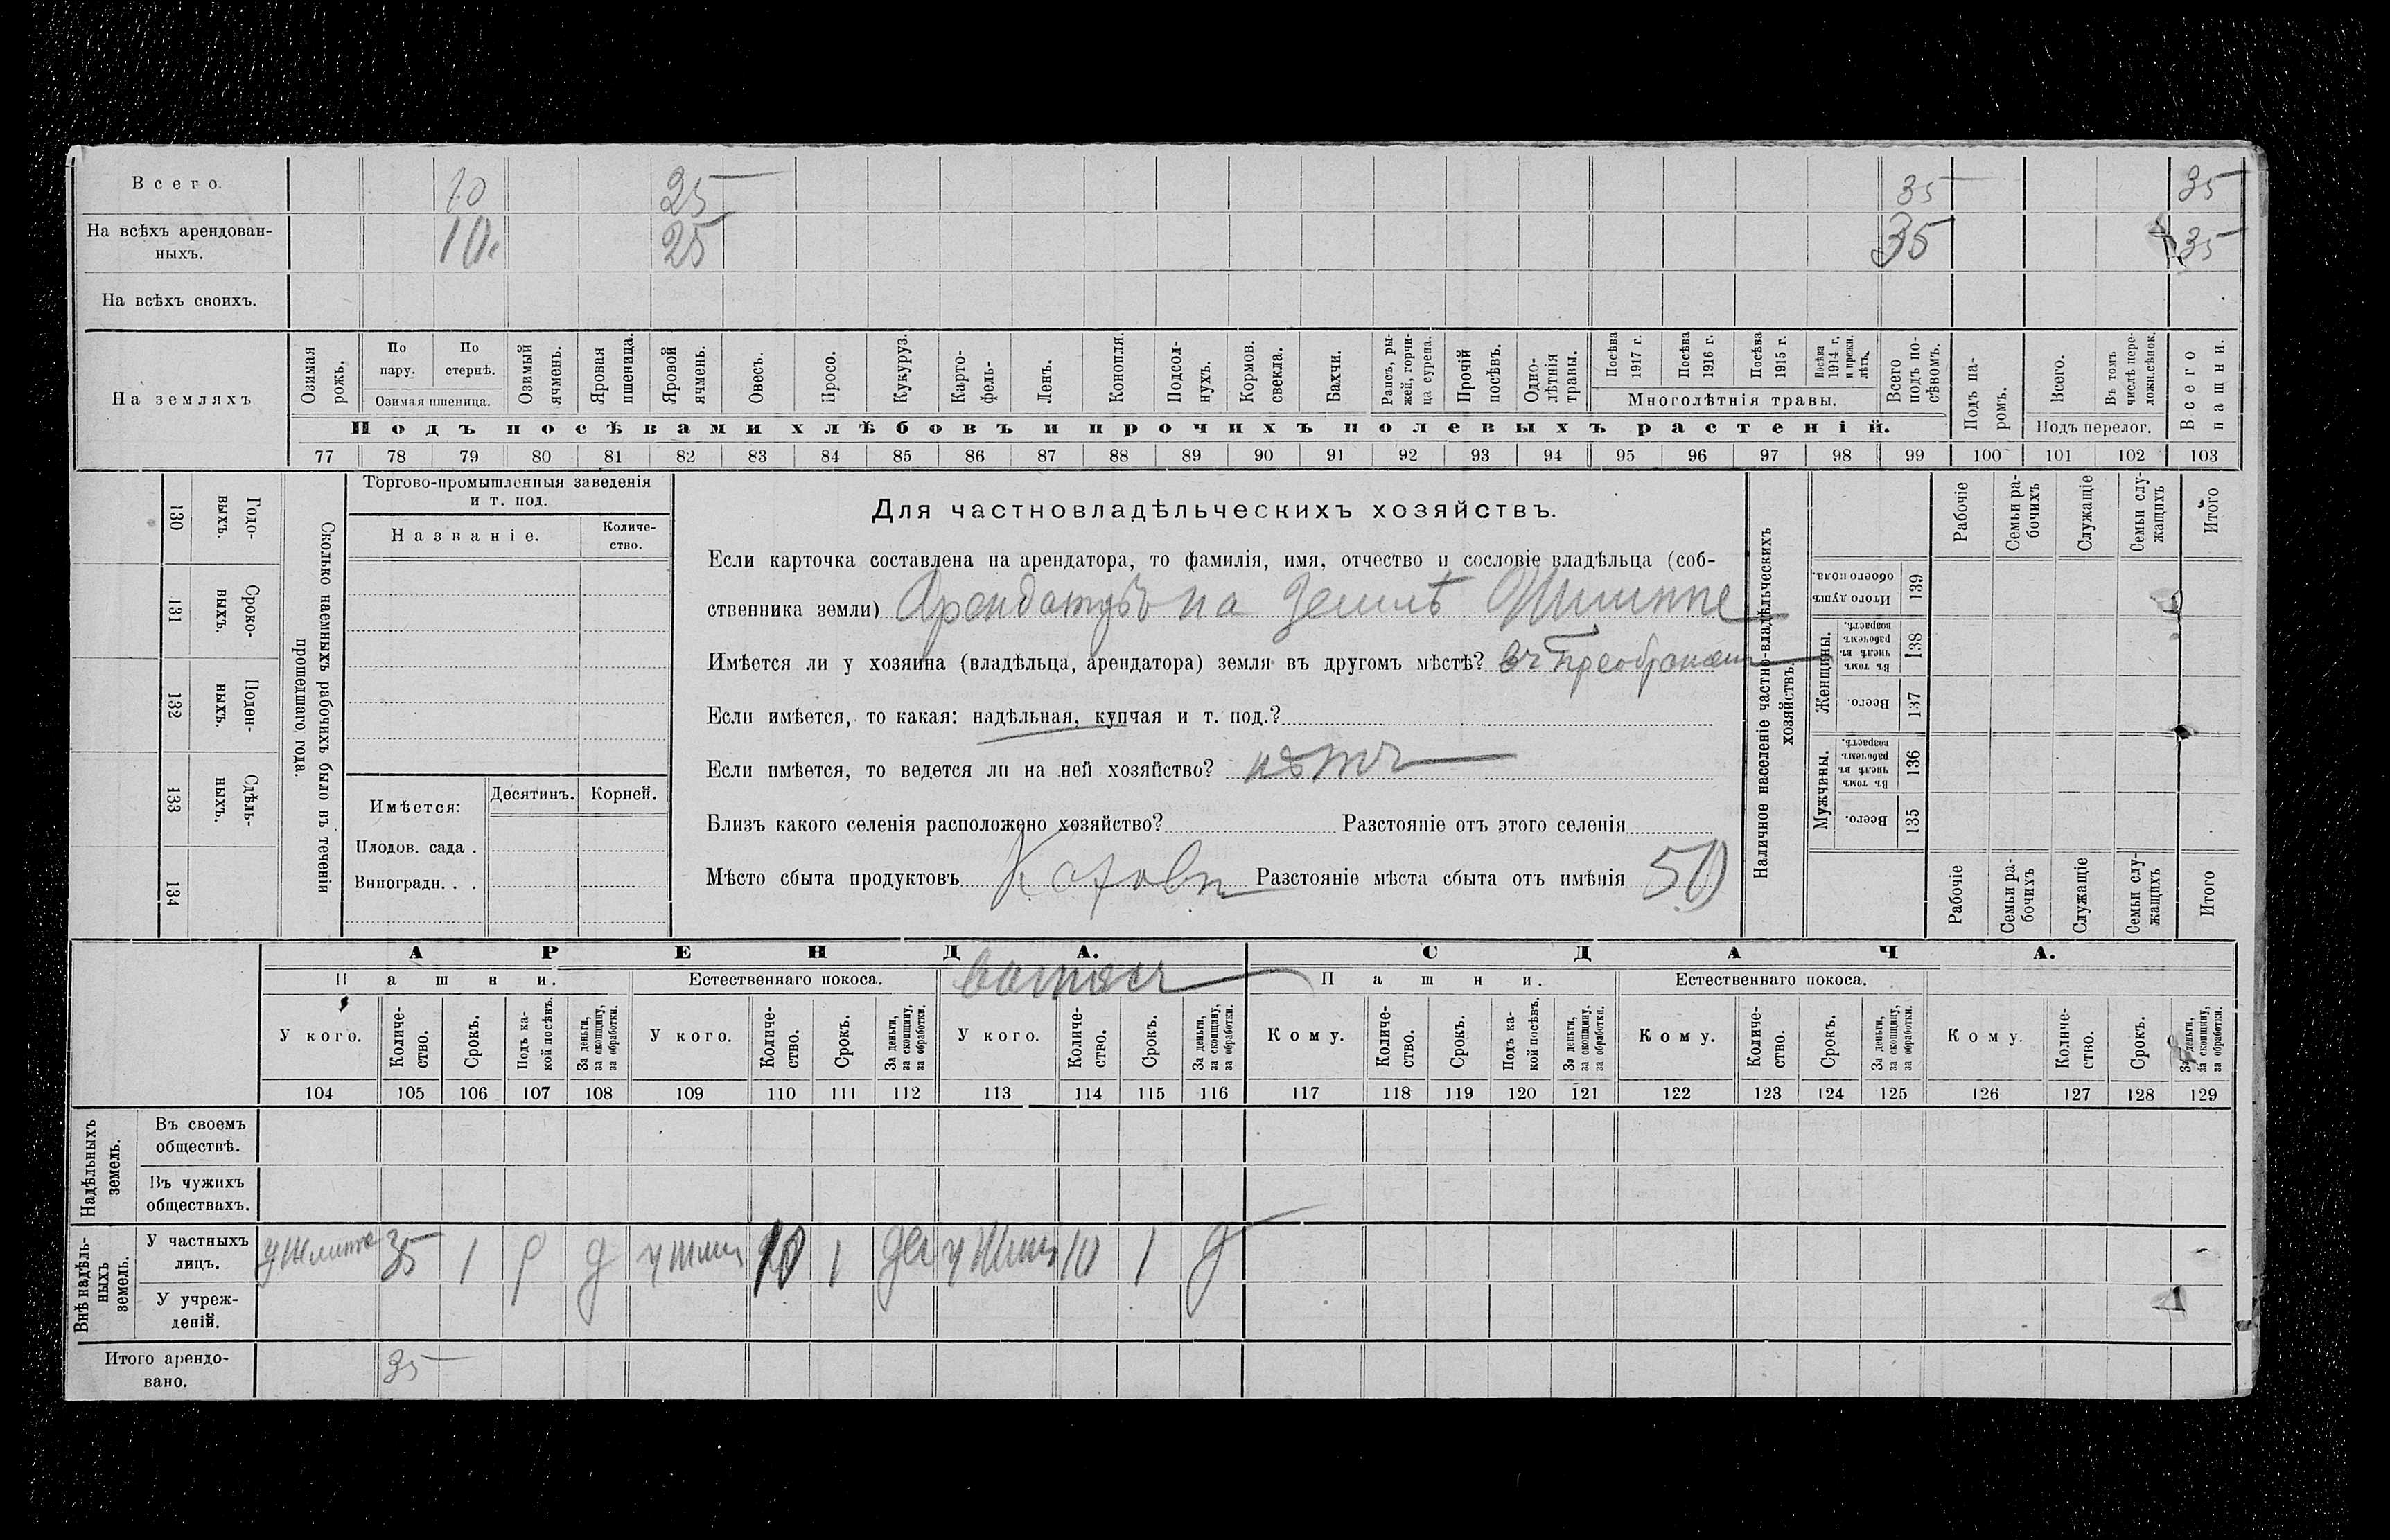 Всего. 10 25 35 35
На всѣхъ арендован-
ныхъ. 10. 25 35 35
На всѣхъ своихъ.
На земляхъ
Озимая рожь.
По пару.
По стернѣ.
Озимая пшеница.
Озимый ячмень.
Яровая пшеница.
Яровой ячмень.
Овесъ.
Просо.
Кукуруз.
Карто-
фель.
Ленъ.
Конопля.
Подсол-
нухъ.
Кормов. свекла.
Бахчи.
Рапсъ, ры-
жей, горчи-
ца сурепа.
Прочій посѣвъ.
Одно-
лѣтнія травы.
Посѣва 1917 г.
Посѣва 1916 г.
Посѣва 1915 г.
Посѣва 1914 г. и прежн. лѣтъ.
Многолѣтнія травы.
Всего подъ по-
сѣвомъ.
Подъ па-
ромъ.
Всего.
Въ томъ числѣ пере-
ложн.сѣнок.
Подъ перелог.
Всего пашни.
Подъ посѣвами хлѣбовъ и прочихъ полевыхъ растеній.
77 78 79 80 81 82 83 84 85 86 87 88 89 90 91 92 93 94 95 96 97 98 99 100 101 102 103
130 Годо-
выхъ.
131 Сроко-
выхъ.
132 Поден-
ныхъ.
133 Сдѣль-
ныхъ.
134
Сколько наемныхъ рабочихъ было въ теченіи
прошедшаго года.
Торгово-промышленныя заведенія
и т. под.
Названіе.
Количе-
ство.
Имѣется:
Десятинъ. Корней.
Плодов. сада .
Виноградн. . .
Для частновладѣльческихъ хозяйствъ.
Если карточка составлена на арендатора, то фамилія, имя, отчество и сословіе владѣльца (соб-
ственника земли) Арендаторъ на землѣ
Имѣется ли у хозяина (владѣльца, арендатора) земля въ другомъ мѣстѣ?
Если имѣется, то какая: надѣльная, купчая и т. под.?
Если имѣется, то ведется ли на ней хозяйство? нѣтъ
Близъ какого селенія расположено хозяйство? Разстояніе отъ этого селенія
Мѣсто сбыта продуктовъ Разстояніе мѣста сбыта отъ имѣнія 50
Наличное населеніе частно-владѣльческихъ
хозяйствъ.
Рабочіе
Семьи ра-
бочихъ
Служащіе
Семьи слу-
жащихъ
Итого
Итого душъ обоего пола. 139
Женщины.
Въ томъ числѣ въ рабочемъ возрастѣ. 138
Всего. 137
Мужчины.
Въ томъ числѣ въ рабочемъ возрастѣ. 136
Всего. 135
Рабочіе
Семьи ра-
бочихъ
Служащіе
Семьи слу-
жащихъ
Итого
АРЕНДА.
СДАЧА.
Пашни.
Естественнаго покоса.
Пашни.
Естественнаго покоса.
У кого.
Количе-
ство.
Срокъ.
Подъ ка-
кой посѣвъ.
За деньги, за скопщину, за обработки.
У кого.
Количе-
ство.
Срокъ.
За деньги, за скопщину, за обработки.
У кого.
Количе-
ство.
Срокъ.
За деньги, за скопщину, за обработки.
Кому.
Количе-
ство.
Срокъ.
Подъ ка-
кой посѣвъ.
За деньги, за скопщину, за обработки.
Кому.
Количе-
ство.
Срокъ.
За деньги, за скопщину, за обработки.
Кому.
Количе-
ство.
Срокъ.
За деньги, за скопщину, за обработки.
104 105 106 107 108 109 110 111 112 113 114 115 116 117 118 119 120 121 122 123 124 125 126 127 128 129
Надѣльныхъ земель.
Въ своемъ
обществѣ.
Въ чужихъ
обществахъ.
Внѣ надѣль-
ныхъ земель.
У частныхъ
лицъ. 35 1 д 1 10 1 д
У учреж-
деній.
Итого арендо-
вано. 35